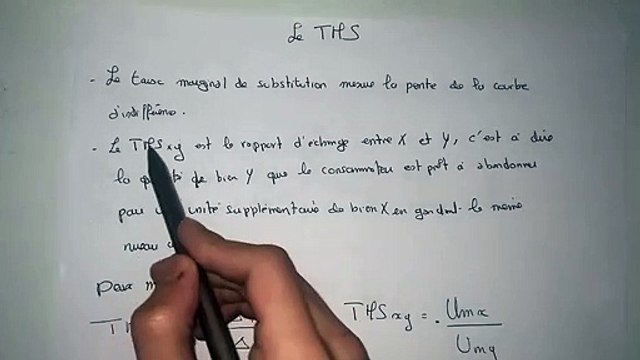 Le TMS
- Le taux marginal de substitution mesure la pente de la courbe
d'indifférence.
- Le TMSxy est le rapport d'échange entre X et Y, c'est à dire
la de bien Y que le consommateur est prêt à abandonner
pour unité supplémentaire de bien X en gardant le même
niveau
Pour
TMSxy = - Umx / Umy